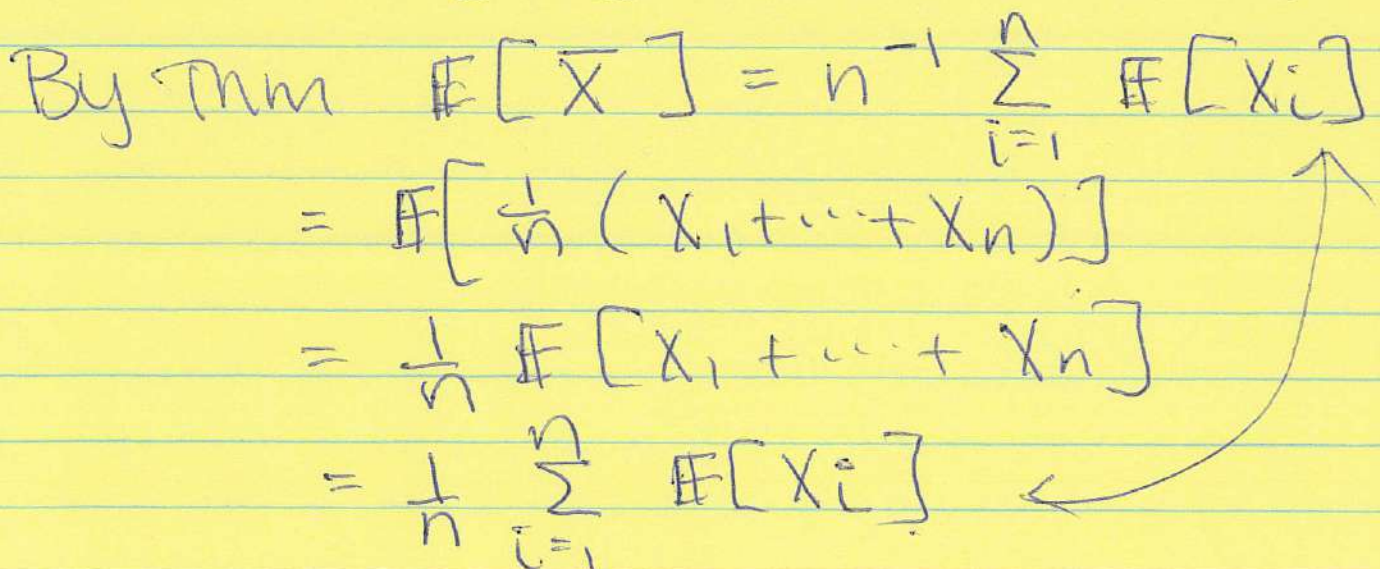 By Thm 𝔼[X̄] = n⁻¹ Σⁿᵢ₌₁ 𝔼[Xᵢ]
= 𝔼[1/n (X₁ + ⋯ + Xₙ)]
= 1/n 𝔼[X₁ + ⋯ + Xₙ]
= 1/n Σⁿᵢ₌₁ 𝔼[Xᵢ]